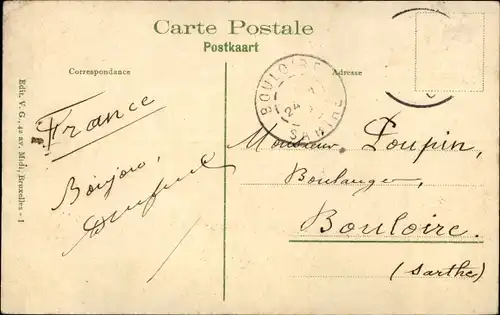 Carte Postale
Postkaart
Correspondance
Adresse
BOULOIRE
24
SARTHE
France
Bonjour,
Monsieur Poupin,
Boulanger,
Bouloire.
(Sarthe)
Edit. V. G., 42 av. Midi, Bruxelles - 1